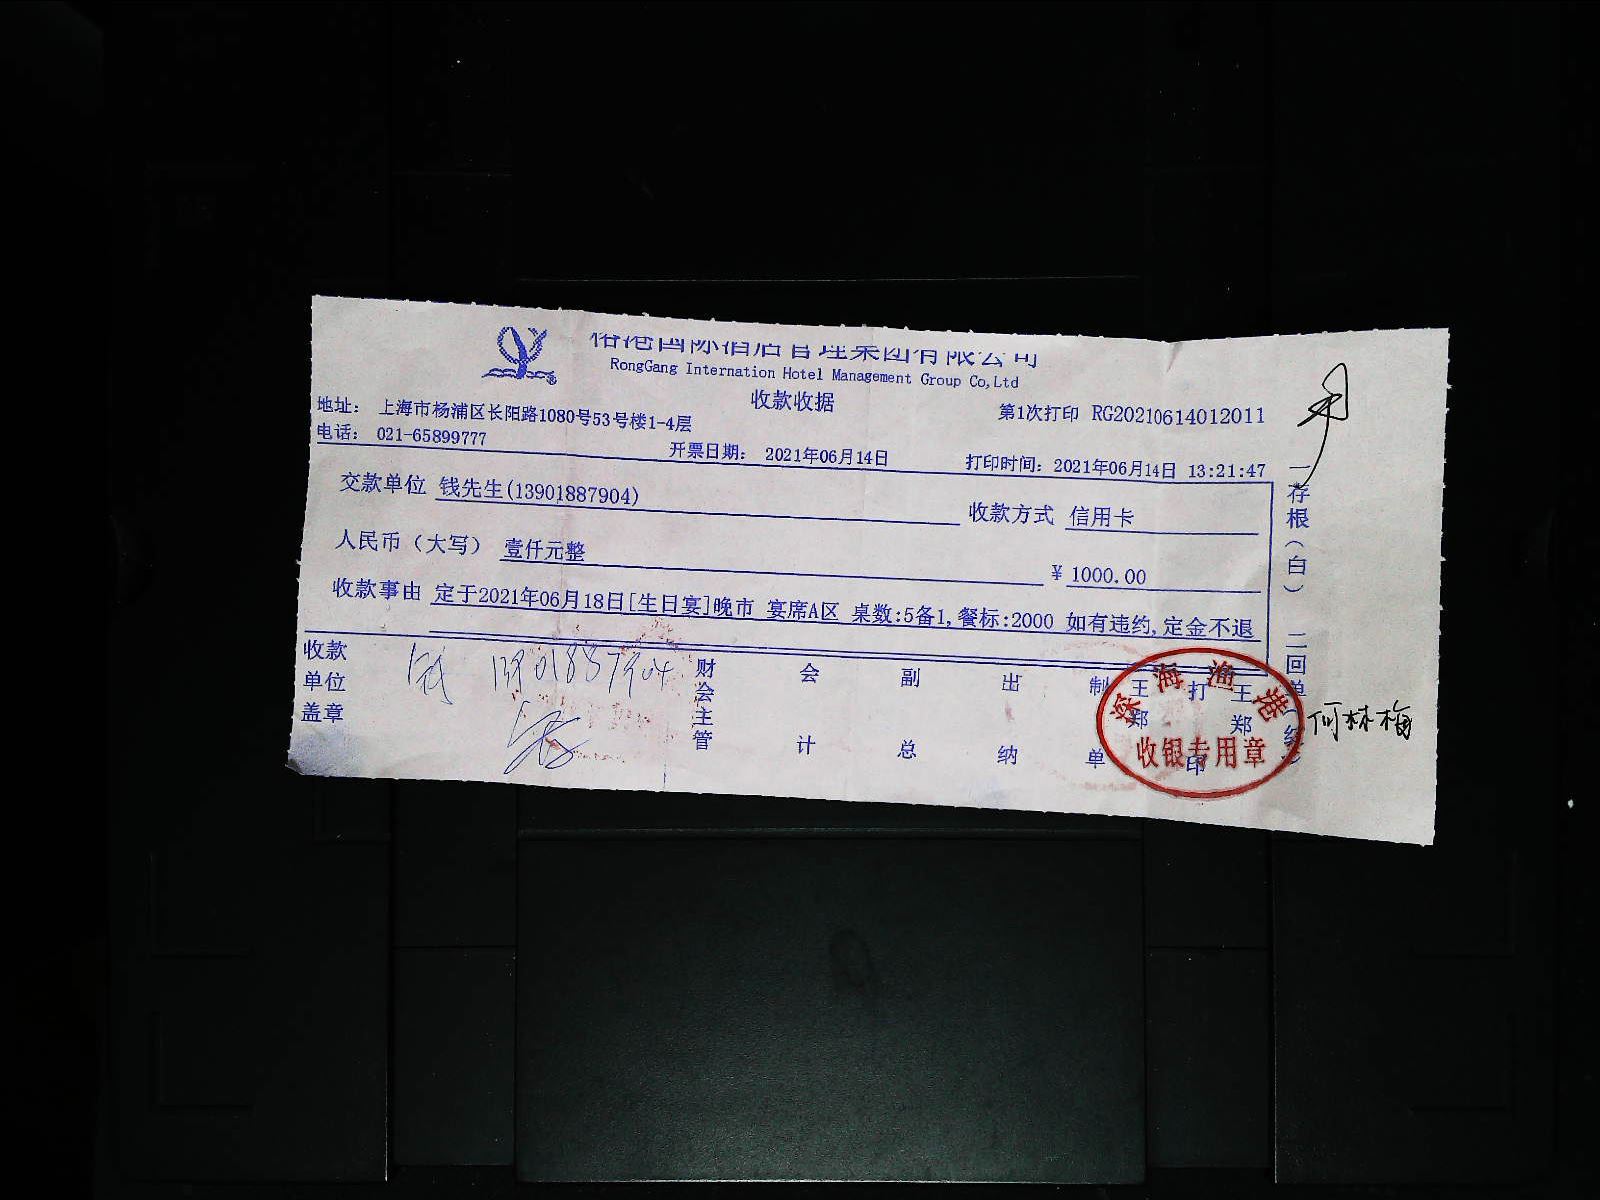 国际酒店管理集团有限公司
RongGang Internation Hotel Management Group Co,Ltd
收款收据
地址： 上海市杨浦区长阳路1080号53号楼1-4层
第1次打印 RG20210614012011
电话： 021-65899777
开票日期： 2021年06月14日
打印时间：2021年06月14日 13:21:47
交款单位 钱先生(13901887904)
收款方式 信用卡
人民币（大写） 壹仟元整
¥ 1000.00
收款事由 定于2021年06月18日[生日宴]晚市 宴席A区 桌数:5备1,餐标:2000 如有违约,定金不退
收款单位盖章
钱 13901887904
财会主管
会计
副总
出纳
制单
王郑
打印
王郑
一存根（白） 二回单
深海渔港
收银专用章
何林梅